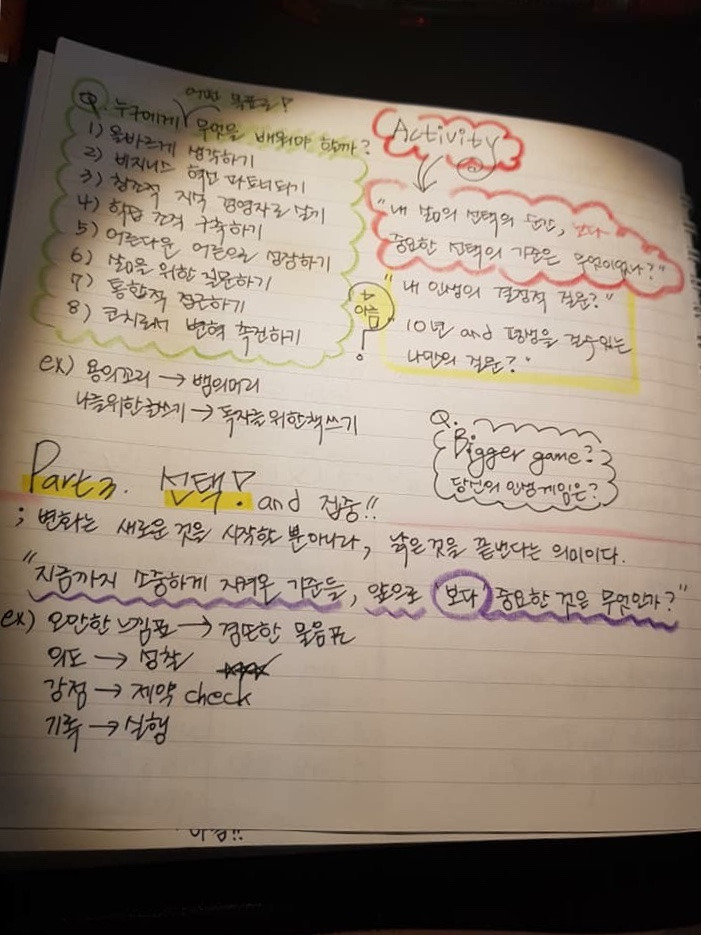 어떤 목표로!
Q. 누구에게 무엇을 배워야 할까?
1) 올바르게 생각하기
2) 비지니스 혁신 파트너되기
3) 창조적 지식 경영자로 살기
4) 학습 조직 구축하기
5) 어른다운 어른으로 성장하기
6) 삶을 위한 질문하기
7) 통합적 접근하기
8) 코치로서 변혁 촉진하기
ex) 용의꼬리 → 뱀의머리
나를위한글쓰기 → 독자를 위한책쓰기
Activity
"내 삶의 선택의 순간, 보다
중요한 선택의 기준은 무엇이었나?"
"내 인생의 결정적 질문?"
10년 and 평생을 걸수있는
나만의 질문?"
아픔
Q.
Bigger game?
당신의 인생게임은?
Part 3. 선택! and 집중!!
; 변화는 새로운 것을 시작할 뿐아니라, 낡은것을 끝낸다는 의미이다.
"지금까지 소중하게 지켜온 기준들, 앞으로 보다 중요한 것은 무엇인가?"
ex) 오만한 느낌표 → 겸손한 물음표
의도 → 성찰
강점 → 제약 check
기록 → 실행